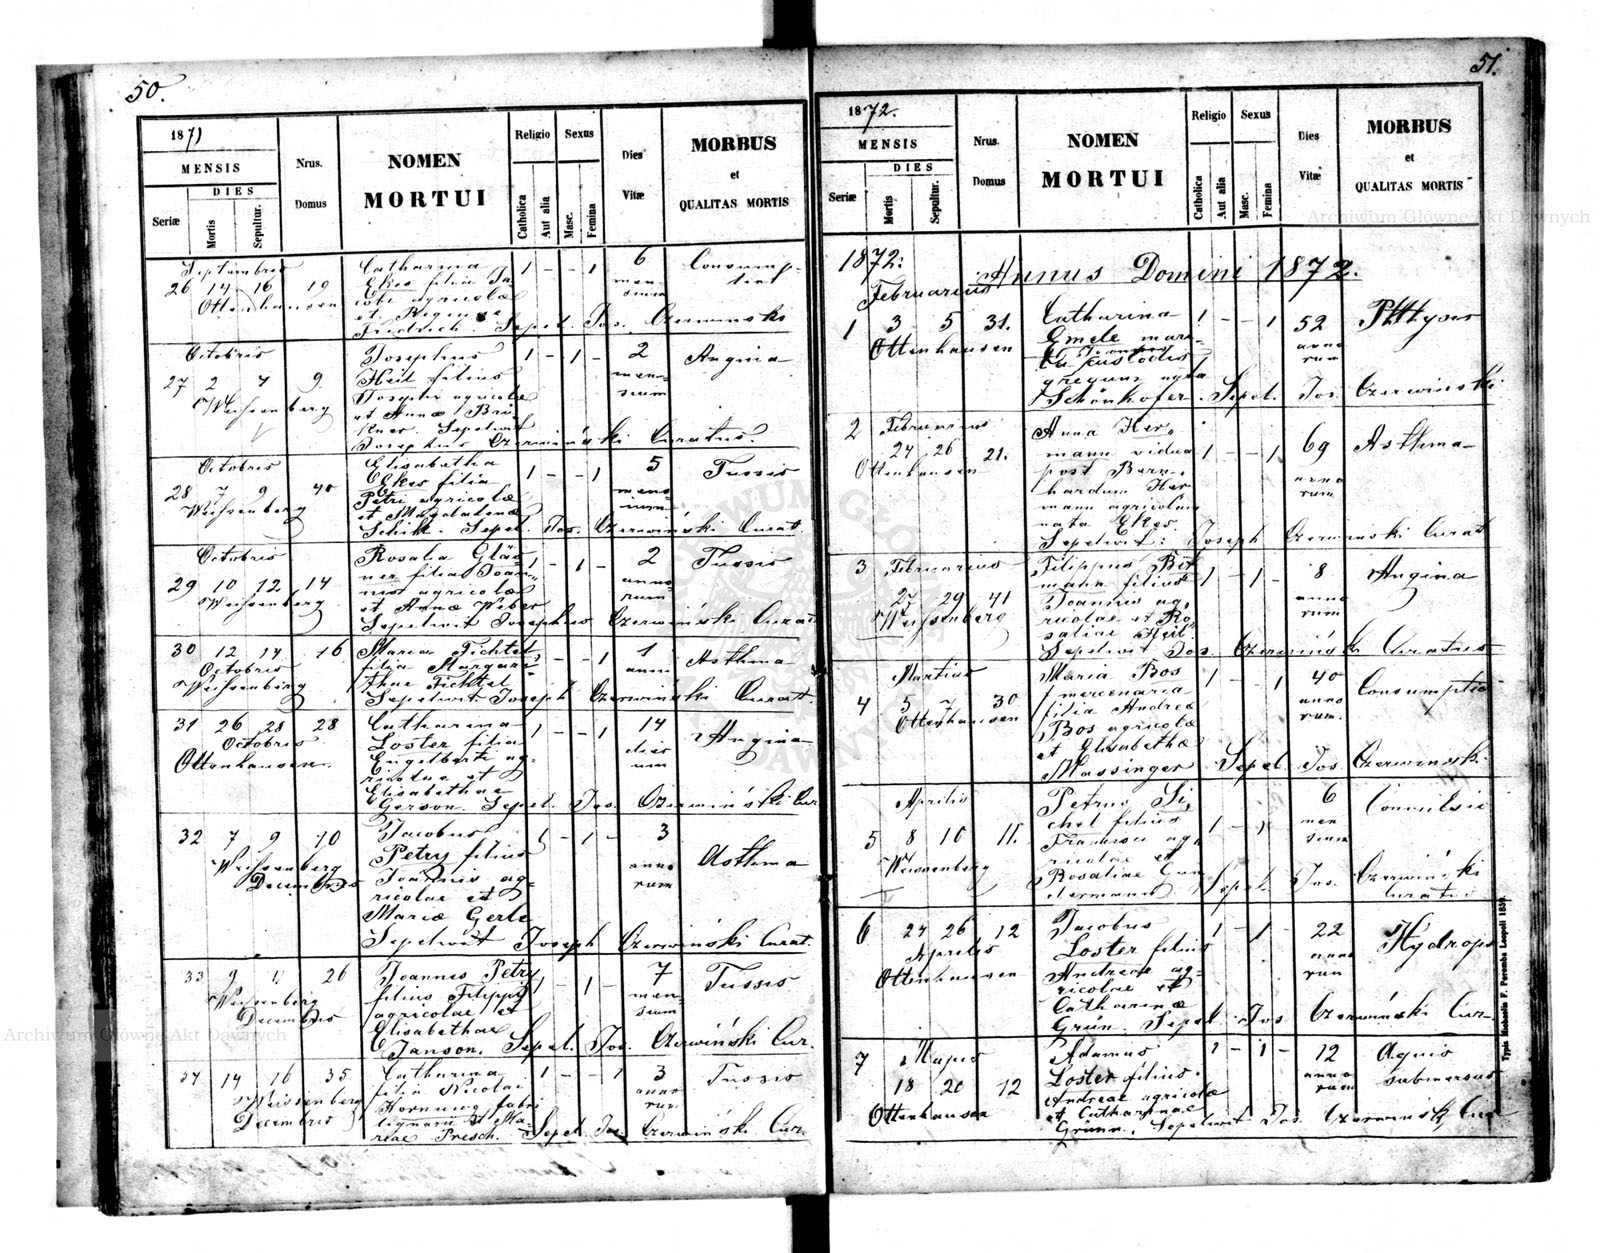 50.
1871
MENSIS
DIES
Seriæ
Mortis
Sepultur.
Nrus.
Domus
NOMEN
MORTUI
Religio
Catholica
Aut alia
Sexus
Masc.
Femina
Dies
Vitæ
MORBUS
et
QUALITAS MORTIS
Septembris
26 14 16 19
Ottenhausen
Catharina
Ekes filia Ja
cobi agricolæ
et Reginæ
Fridrich. Sepel. Jos. Czerwinski
1 - - 1
6
men-
sium
Consump-
tio
Octobris
27 2 4 9.
Weissenberg
Josephus
Heil filius
Josephi agricolæ
et Annæ
Sepelivit
Josephus Czerwiński Curatus.
1 - 1 -
2
men-
sium
Angina
Octobris
28 7 9 40
Weissenberg
Elisabetha
Ekes filia
Petri agricolæ
et Magdalenæ
Schik. Sepel. Jos. Czerwiński Curat.
1 - - 1
5
mens
ium
Tussis
Octobris
29 10 12 14
Weissenberg
Rosalia Gläs
ner filia Joan
nis agricolæ
et Annæ Weber
Sepelivit Josephus Czerwiński Curat
1 - 1 -
2
anno
rum
Tussis
30 12 14 16
Octobris
Weissenberg
Maria Fichtel
filia Margari
thae Fichtel
Sepelivit Joseph Czerwiński Curatt.
1 - - 1
1
anni
Asthma
31 26 28 28
Octobris
Ottenhausen
Catharina
Loster filia
Engelberti ag-
ricolae et
Elisabethae
Gerson. Sepel. Jos. Czerwiński Cur.
1 - - 1
14
dier
um
Angina
32 7 9 10
Weissenberg
Decembris
Jacobus
Petry filius
Joannis ag-
ricolae et
Mariæ Gerle
Sepelivit Joseph Czerwiński Curat.
1 - 1 -
3
anno
rum
Asthma
33 9 11 26
Weissenberg
Decembris
Joannes Petry
filius Filippi
agricolae et
Elisabethae
Janson. Sepel. Jos. Czerwiński Cur.
1 - 1 -
7
men-
sium
Tussis
34 14 16 35
Weissenberg
Decembris
Catharina
filia Nicolai
Hornung fabri
lignarii et Ma-
riae Presch. Sepel. Jos. Czerwiński Cur.
1 - - 1
3
anno
rum
Tussis
51.
1872.
MENSIS
DIES
Seriæ
Mortis
Sepultur.
Nrus.
Domus
NOMEN
MORTUI
Religio
Catholica
Aut alia
Sexus
Masc.
Femina
Dies
Vitæ
MORBUS
et
QUALITAS MORTIS
1872.
Annus Domini 1872.
Februarius
1 3 5 31.
Ottenhausen
Catharina
Gmele mari-
custodis
gregum nata
Schönhofer. Sepel. Jos. Czerwiński.
1 - - 1
52
anno
rum
2 Februarius
24 26 21.
Ottenhausen
Anna Her,
mann vidua
post Bern,
hardum Her
mann agricolam
nata Ekes
Sepelivit: Joseph Czerwinski Curat
1 - - 1
69
anno
rum
Asthma
3 Februarius
27 29 41
Weissenberg
Filippus
mann filius
Joannis ag,
ricolae et Ro,
saliae Heil.
Sepelivit Jos. Czerwiński Curatus
1 - 1 -
8
anno
rum
Angina
Martius
4 5 7 30
Ottenhausen
Maria Bos
mercenaria
filia Andreæ
Bos agricolæ
et Elisabethæ
Massinger Sepel Jos Czerwinski.
1 - - 1
40
anno
rum.
Consumptio
Aprilis
5 8 10 11.
Weissenberg
Petrus Si,
chel filius
Francisci ag,
ricolae et
Rosaliae Gun
dermann Sepel. Jos. Czerwiński
Curatus
1 - 1 -
6
men
sium
Convulsio
6 24 26 12
Aprilis
Ottenhausen
Jacobus
Loster filius
Andreae ag-
ricolae et
Catharinæ
Grün. Sepel. Jos Czerwiński Cur.
1 - 1 -
22
anno
rum
Hydrops
7 Majus
18 20 12
Ottenhausen
Adamus
Loster filius
Andreae agricolæ
et Catharinae
Grünn. Sepelivit Jos. Czerwiński Cur
1 - 1 -
12
anno
rum
Aquis
submersus
Typis Michaelis F. Poremba Leopoli 1859.
Archiwum Główne Akt Dawnych
Archiwum Główne Akt Dawnych